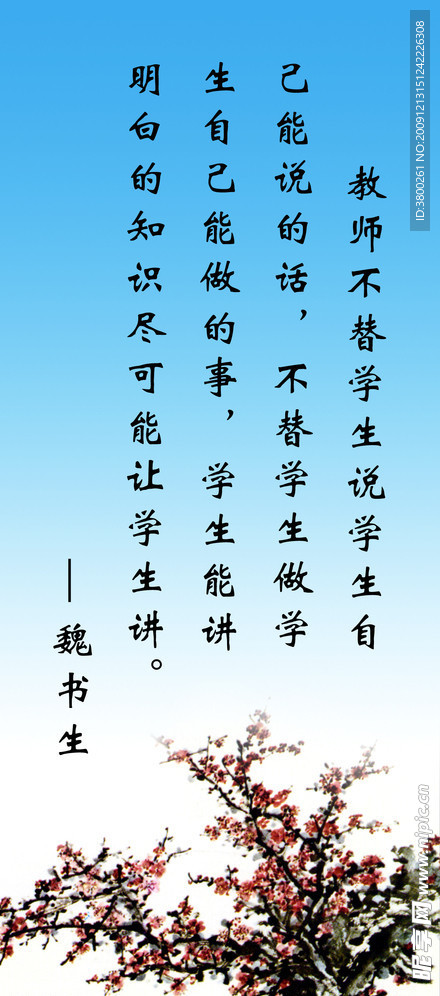 教师不替学生说学生自
己能说的话，不替学生做学
生自己能做的事，学生能讲
明白的知识尽可能让学生讲。
—魏书生
ID:3800261 NO:20091213151242226308
昵享网 www.nipic.cn